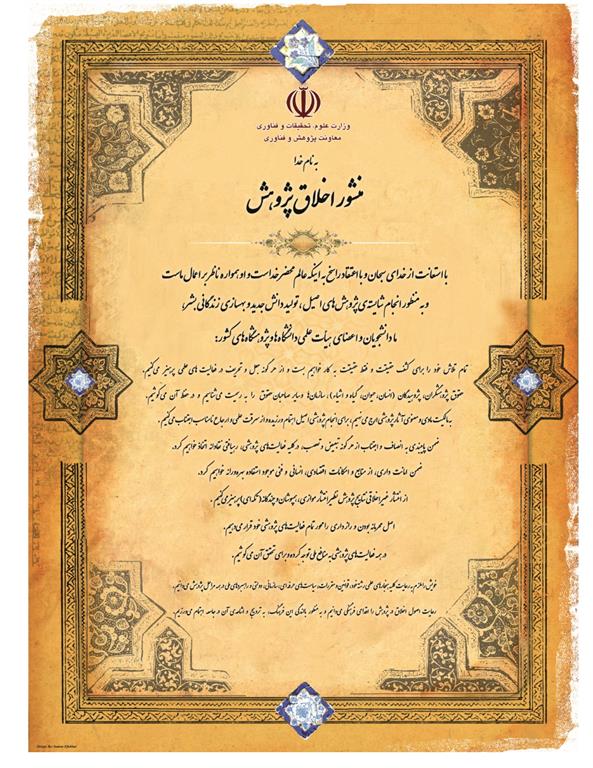 وزارت علوم، تحقیقات و فناوری
معاونت پژوهش و فناوری
به نام خدا
منشور اخلاق پژوهش
با استعانت از خدای سبحان و با اعتقاد راسخ به اینکه عالم محضر خداست و او همواره ناظر بر اعمال ماست
و به منظور انجام شایسته‌ی پژوهش‌های اصیل، تولید دانش جدید و بهسازی زندگانی بشر،
ما دانشجویان و اعضای هیأت علمی دانشگاه‌ها و پژوهشگاه‌های کشور:
تمام تلاش خود را برای کشف حقیقت و فقط حقیقت به کار خواهیم بست و از هر گونه جعل و تحریف در فعالیت های علمی پرهیز می‌کنیم.
حقوق پژوهشگران، پژوهیدگان (انسان، حیوان، گیاه و اشیاء)، سازمان‌ها و سایر صاحبان حقوق را به رسمیت می‌شناسیم و در حفظ آن می کوشیم.
به مالکیت مادی و معنوی آثار پژوهشی ارج می نهیم، برای انجام پژوهشی اصیل اهتمام ورزیده و از سرقت علمی و ارجاع نامناسب اجتناب می کنیم.
ضمن پایبندی به انصاف و اجتناب از هر گونه تبعیض و تعصب، در کلیه فعالیت‌های پژوهشی، رهیافتی نقادانه اتخاذ خواهیم کرد.
ضمن امانت داری، از منابع و امکانات اقتصادی، انسانی و فنی موجود استفاده بهره‌ورانه خواهیم کرد.
از انتشار غیر اخلاقی نتایج پژوهش نظیر انتشار موازی، همپوشان و چندگانه (تکه‌ای) پرهیز می کنیم.
اصل محرمانه بودن و رازداری را محور تمام فعالیت‌های پژوهشی خود قرار می‌دهیم.
در همه فعالیت‌های پژوهشی به منافع ملی توجه کرده و برای تحقق آن می کوشیم.
خویش را ملزم به رعایت کلیه هنجارهای علمی رشته خود، قوانین و مقررات، سیاست‌های حرفه‌ای، سازمانی، دولتی و راهبردهای ملی در همه مراحل پژوهش می‌دانیم.
رعایت اصول اخلاق در پژوهش را اقدامی فرهنگی می‌دانیم و به منظور بالندگی این فرهنگ، به ترویج و اشاعه‌ی آن در جامعه اهتمام می‌ورزیم.